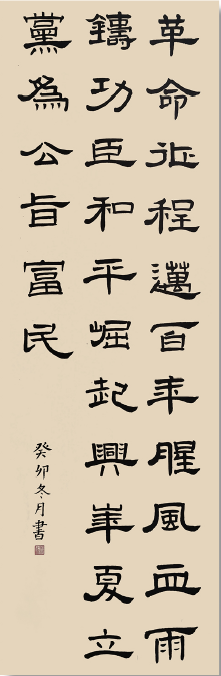 革命征程邁百年腥風血雨
鑄功臣和平崛起興華夏立
黨為公旨富民
癸卯冬月書